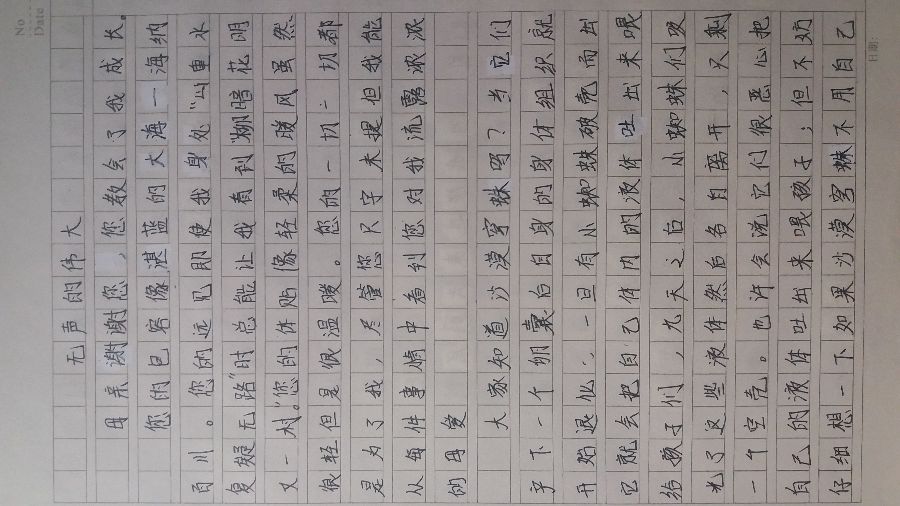 No
Date
日期:
无声的伟大
母亲谢谢您,您教会了我成长。
您的包容像湛蓝的大海一海纳
百川。您的远见即使我身处“山重水
复疑无路”时总能让我看到“柳暗花明
又一村”您的体贴像轻柔的暖风虽然
很轻但是很温暖。您的一切一切都
是为了我,尽管您只字未提但我能
从每件事情中看到您对我流露浓浓
的母爱
大家知道沙漠穹蛛吗?当它们
产下一个卵囊后自身的身体组织就
开始退化,一旦有小蜘蛛破壳而出
它就会把自己体内的液体吐出来喂
给孩子们,九天之后,小蜘蛛们吸
光了这些液体然后各自离开,只剩
一个空壳。也许会流它们很恶心把
自己的液体吐出来喂孩子;但不妨
仔细想一下如果沙漠穹蛛不用自己